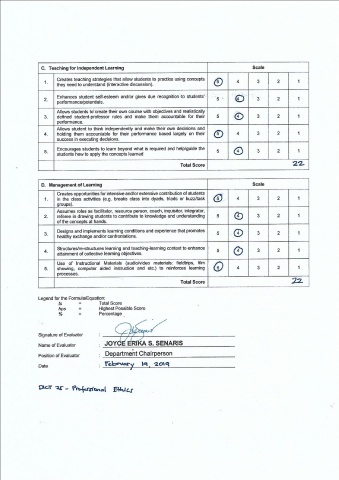 C. Teaching for Independent Learning Scale
1. Creates teaching strategies that allow students to practice using concepts 5 4 3 2 1
they need to understand (interactive discussion).
2. Enhances student self-esteem and/or gives due recognition to students' 5 4 3 2 1
performance/potentials.
3. Allows students to create their own course with objectives and realistically 5 4 3 2 1
defined student-professor rules and make them accountable for their
performance.
4. Allows student to think independently and make their own decisions and 5 4 3 2 1
holding them accountable for their performance based largely on their
success in executing decisions.
5. Encourages students to learn beyond what is required and help/guide the 5 4 3 2 1
students how to apply the concepts learned
Total Score 22
D. Management of Learning Scale
1. Creates opportunities for intensive and/or extensive contribution of students 5 4 3 2 1
in the class activities (e.g. breaks class into dyads, triads or buzz/task
groups).
2. Assumes roles as facilitator, resource person, coach, inquisitor, integrator, 5 4 3 2 1
referee in drawing students to contribute to knowledge and understanding
of the concepts at hands.
3. Designs and implements learning conditions and experience that promotes 5 4 3 2 1
healthy exchange and/or confrontations.
4. Structures/re-structures learning and teaching-learning context to enhance 5 4 3 2 1
attainment of collective learning objectives.
5. Use of Instructional Materials (audio/video materials: fieldtrips, film 5 4 3 2 1
showing, computer aided instruction and etc.) to reinforces learning
processes.
Total Score 22
Legend for the Formula/Equation:
= Total Score
= Highest Possible Score
% = Percentage
Signature of Evaluator :
Name of Evaluator : JOYCE ERIKA S. SENARIS
Position of Evaluator : Department Chairperson
Date : February 19, 2019
75 - Professional Ethics